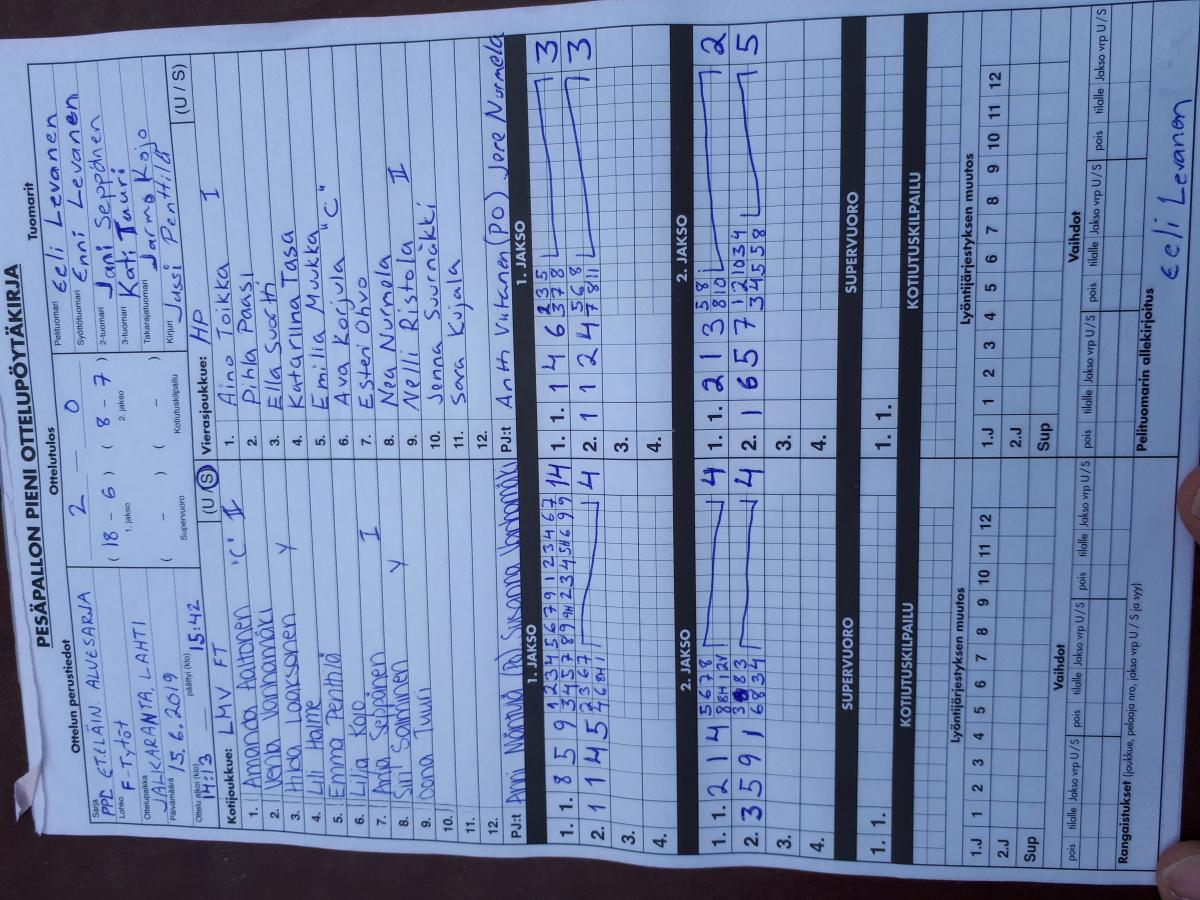 PESÄPALLON PIENI OTTELUPÖYTÄKIRJA
Ottelun perustiedot
Sarja
PPL ETELÄIN ALUESARJA
Lohko
F-Tytöt
Ottelupaikka
JALKARANTA, LAHTI
Päivämäärä
15.6.2019
Ottelu alkoi (klo) 14:13
päättyi (klo) 15:42
Ottelutulos
2 — 0
( 18 - 6 ) ( 8 - 7 )
1. jakso 2. jakso
( - ) ( - )
Supervuoro Kotiutuskilpailu
Tuomarit
Pelituomari Eeli Levanen
Syöttötuomari Enni Levanen
2-tuomari Jani Seppänen
3-tuomari Kati Tauri
Takarajatuomari Jarmo Kojo
Kirjuri Jussi Penttilä
Kotijoukkue: LMV FT (U / S)
1. Amanda Haltonen "C" II
2. Venla Vanhamäki
3. Hilda Laaksonen Y
4. Lili Halme
5. Emma Penttilä
6. Lilja Kojo I
7. Anja Seppänen
8. Sini Salminen Y
9. Oona Tuuri
10.
11.
12.
PJ:t Ani Mäntylä (PO) Susanna Vanhamäki
Vierasjoukkue: HP (U / S)
1. Aino Toikka I
2. Pihla Paasi
3. Ella Suortti
4. Katariina Tasa
5. Emilia Muukka
6. Ava Korjula "C"
7. Esteri Ohvo
8. Nea Nurmela
9. Nelli Ristola II
10. Jenna Suurnäkki
11. Sara Kujala
12.
PJ:t Antti Viitanen (PO) Jere Nurmela
1. JAKSO 1. JAKSO
1. 1. 8 5 9 3 14
2. 1 1 4 5 4
3.
4.
1. 1. 1 4 6 3
2. 1 1 2 4 3
3.
4.
2. JAKSO 2. JAKSO
1. 1. 2 1 4 4
2. 3 5 9 1 4
3.
4.
1. 1. 2 1 3 2
2. 1 6 5 7 5
3.
4.
SUPERVUORO SUPERVUORO
1. 1.
1. 1.
KOTIUTUSKILPAILU KOTIUTUSKILPAILU
Lyöntijärjestyksen muutos Lyöntijärjestyksen muutos
1.J 1 2 3 4 5 6 7 8 9 10 11 12
2.J
Sup
1.J 1 2 3 4 5 6 7 8 9 10 11 12
2.J
Sup
Vaihdot Vaihdot
pois tilalle Jakso vrp U / S pois tilalle Jakso vrp U / S pois tilalle Jakso vrp U / S
pois tilalle Jakso vrp U / S pois tilalle Jakso vrp U / S pois tilalle Jakso vrp U / S
Rangaistukset (joukkue, pelaaja nro, jakso vrp U / S ja syy)
Pelituomarin allekirjoitus
Eeli Levanen